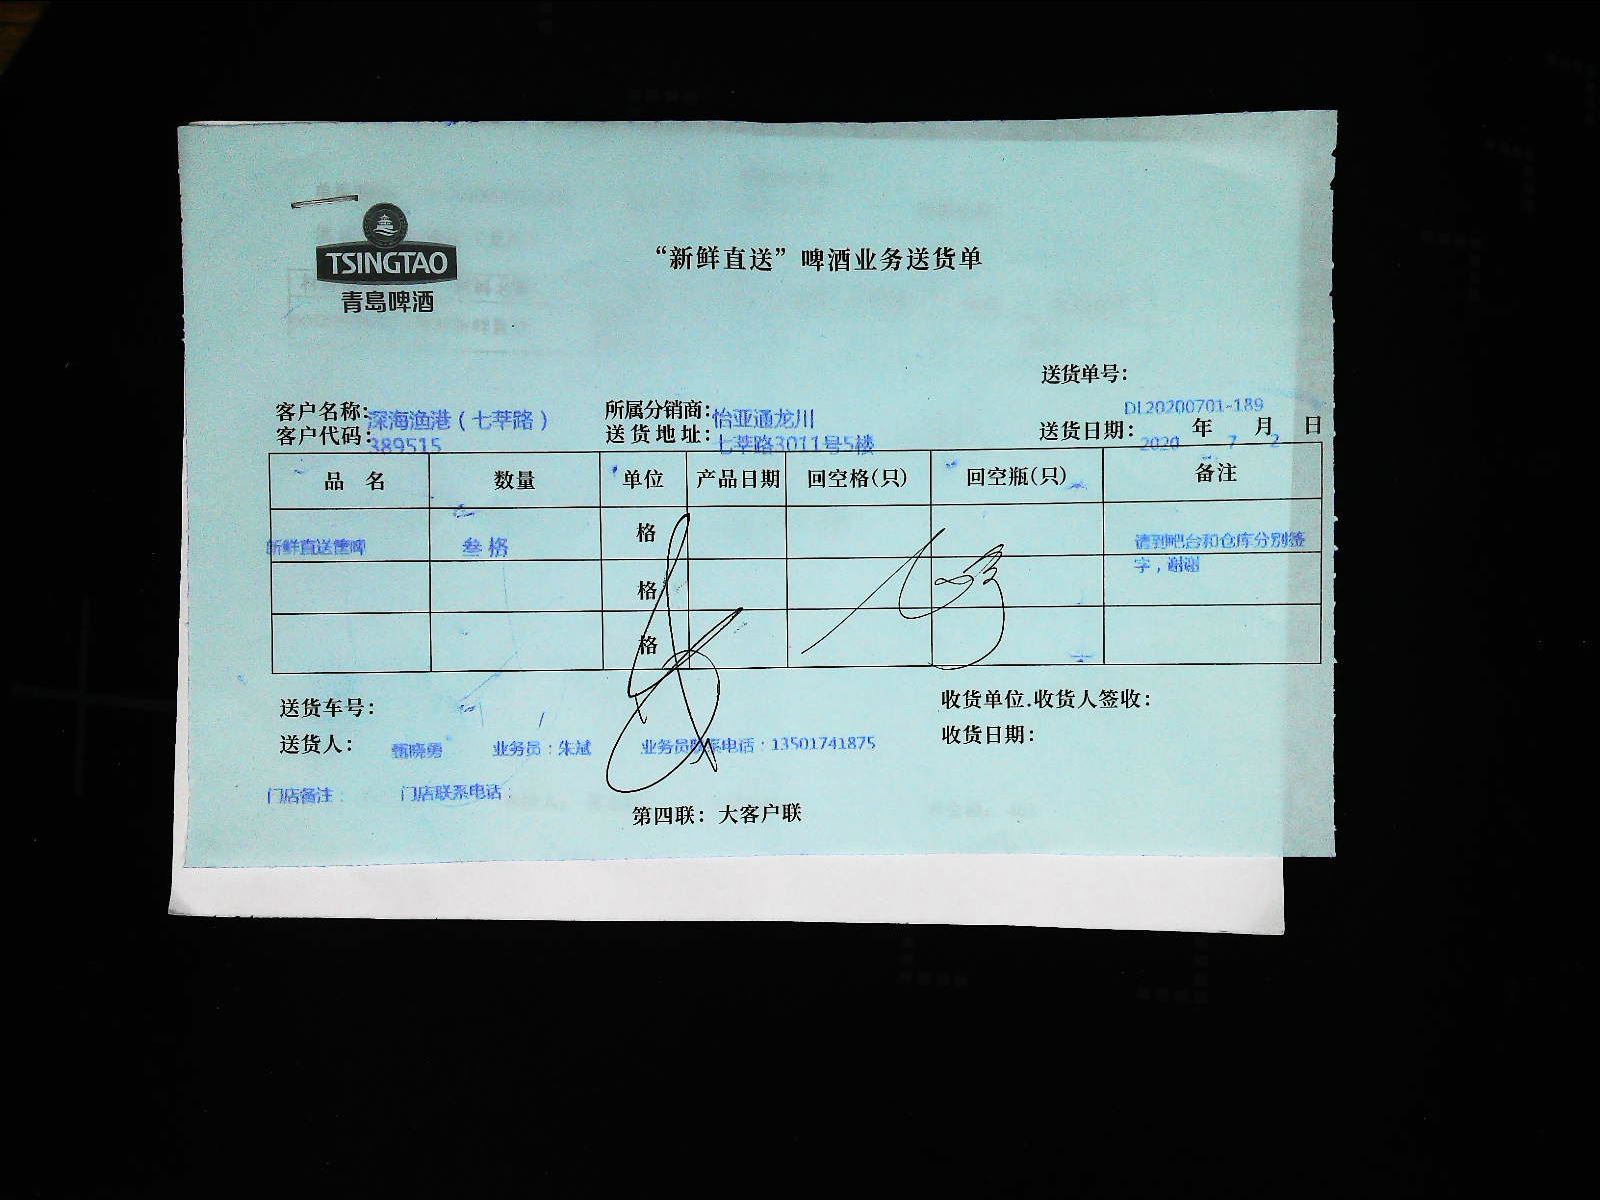 TSINGTAO
青島啤酒
“新鲜直送”啤酒业务送货单
送货单号：
DL20200701-189
客户名称：深海渔港（七莘路） 所属分销商：怡亚通龙川
客户代码：389515 送货地址：七莘路3011号5楼 送货日期：2020年7月2日
品名 数量 单位 产品日期 回空格(只) 回空瓶(只) 备注
新鲜直送筐啤 叁格 格 请到吧台和仓库分别签字，谢谢
格
格
送货车号： 收货单位.收货人签收：
送货人：甄晓勇 业务员：朱斌 业务员联系电话：13501741875 收货日期：
门店备注： 门店联系电话：
第四联：大客户联